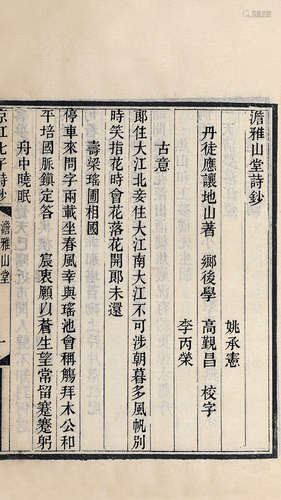 澹雅山堂詩鈔
丹徒應讓地山著 鄉後學
姚承憲
高覲昌 校字
李丙榮
古意
郎住大江北妾住大江南大江不可涉朝暮多風帆別
時笑指花時會花落花開郎未還
壽梁瑤圃相國
停車來問字兩載坐春風幸與瑤池會稱觴拜木公和
平培國脈鎮定答 宸衷願以蒼生望常留蹇蹇躬
舟中曉眠
京江七子詩鈔 澹雅山堂 一